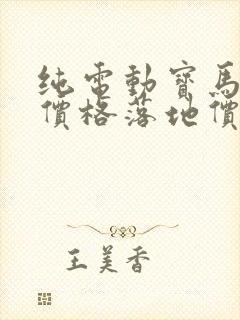 純電動寶馬
價格落地價
王美香